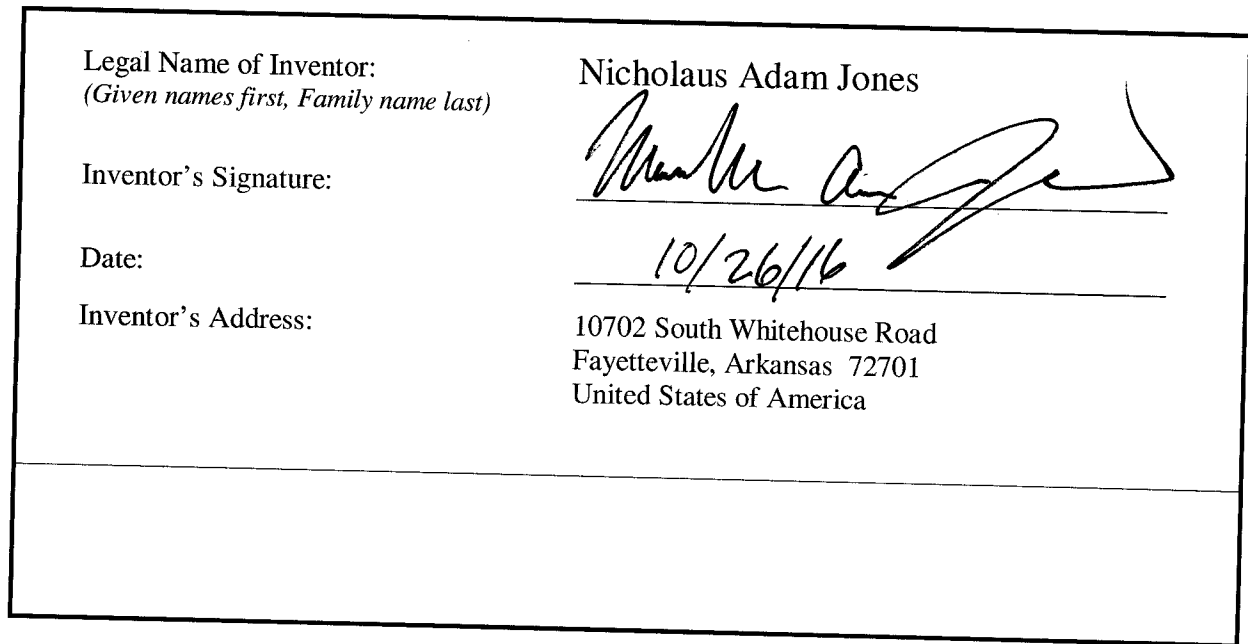 Legal Name of Inventor: Nicholaus Adam Jones
(Given names first, Family name last)
Inventor's Signature:
Date: 10/26/16
Inventor's Address: 10702 South Whitehouse Road
Fayetteville, Arkansas 72701
United States of America